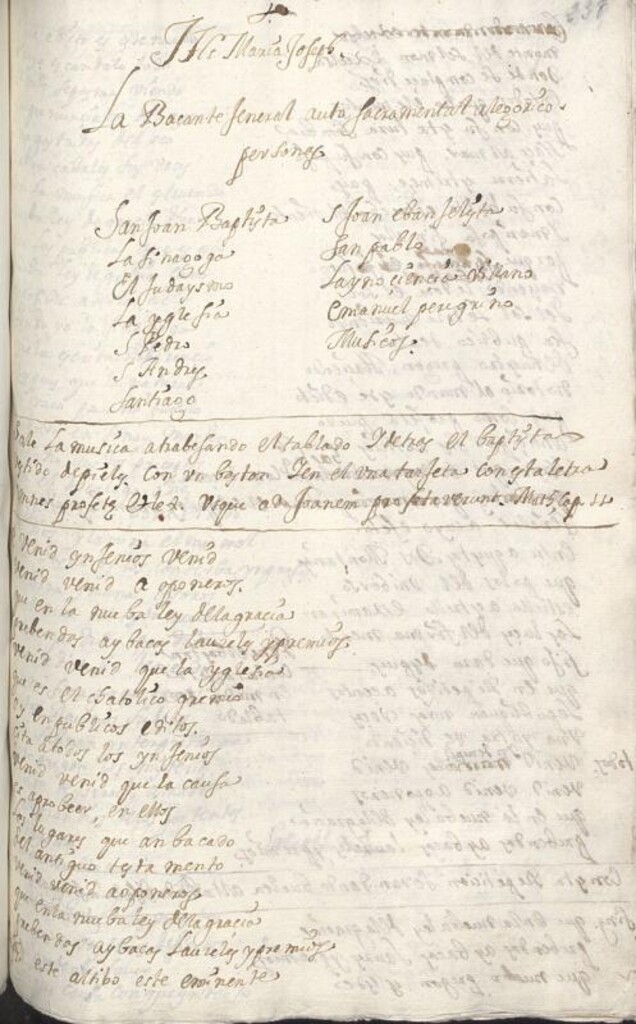 Jhs Maria Joseph.
La Bacante Jeneral auto sacramental alegorico.
personas
San Joan Baptysta
La sinagoga
El Judaysmo
La yglesia
S Pedro
S Andres
Santiago
S Joan ebanjelysta
San pablo
La ynociencia Villano
emanuel peregrino
Musicos.
Sale La musica atrabesando el tablado Y detras el baptysta
vestido de pieles con vn baston Y en el vna tarjeta con esta letra
omnes profete et lex. vsque ad Joanem profetaverunt. Mat, Cap. 11
venid ynjenios venid
venid venid a oponeros.
que en la nueba ley de la gracia
prebendas ay bacas Laureles y premios.
venid venid que la yglesia
que es el chatolico gremio
oy en publicos editos.
cita a todos los ynjenios
venid venid que la causa
es a probeer, en ellos
los lugares que an bacado
del antiguo testamento
venid venid a oponeros
que en la nueba ley de la gracia
prebendas ay bacas Laureles y premios
este altibo este eminente